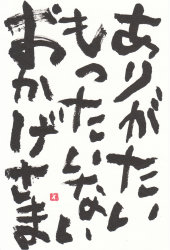 ありがたい
もったいない
おかげさま